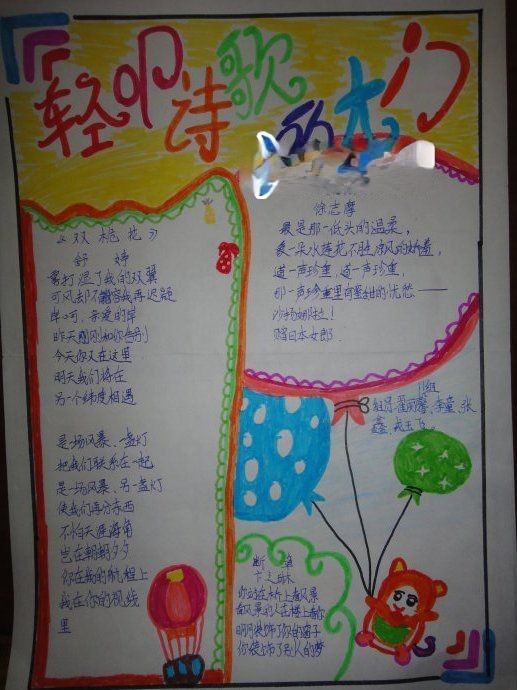 轻叩诗歌的大门
《双桅花》
舒 婷
雾打湿了我的双翼
可风却不容我再迟疑
岸呵,亲爱的岸
昨天刚刚和你告别
今天你又在这里
明天我们将在
另一个纬度相遇
是一场风暴、一盏灯
把我们联系在一起
是一场风暴、另一盏灯
使我们再分东西
不怕天涯海角
岂在朝朝夕夕
你在我的航程上
我在你的视线
里
徐志摩
最是那一低头的温柔,
象一朵水莲花不胜凉风的娇羞,
道一声珍重,道一声珍重,
那一声珍重里有蜜甜的忧愁——
沙扬娜拉!
赠日本女郎.
11组
组员:翟丽馨、李童、张
鑫、玉飞.
断 章
卞之琳
你站在桥上看风景
看风景的人在楼上看你
明月装饰了你的窗子
你装饰了别人的梦